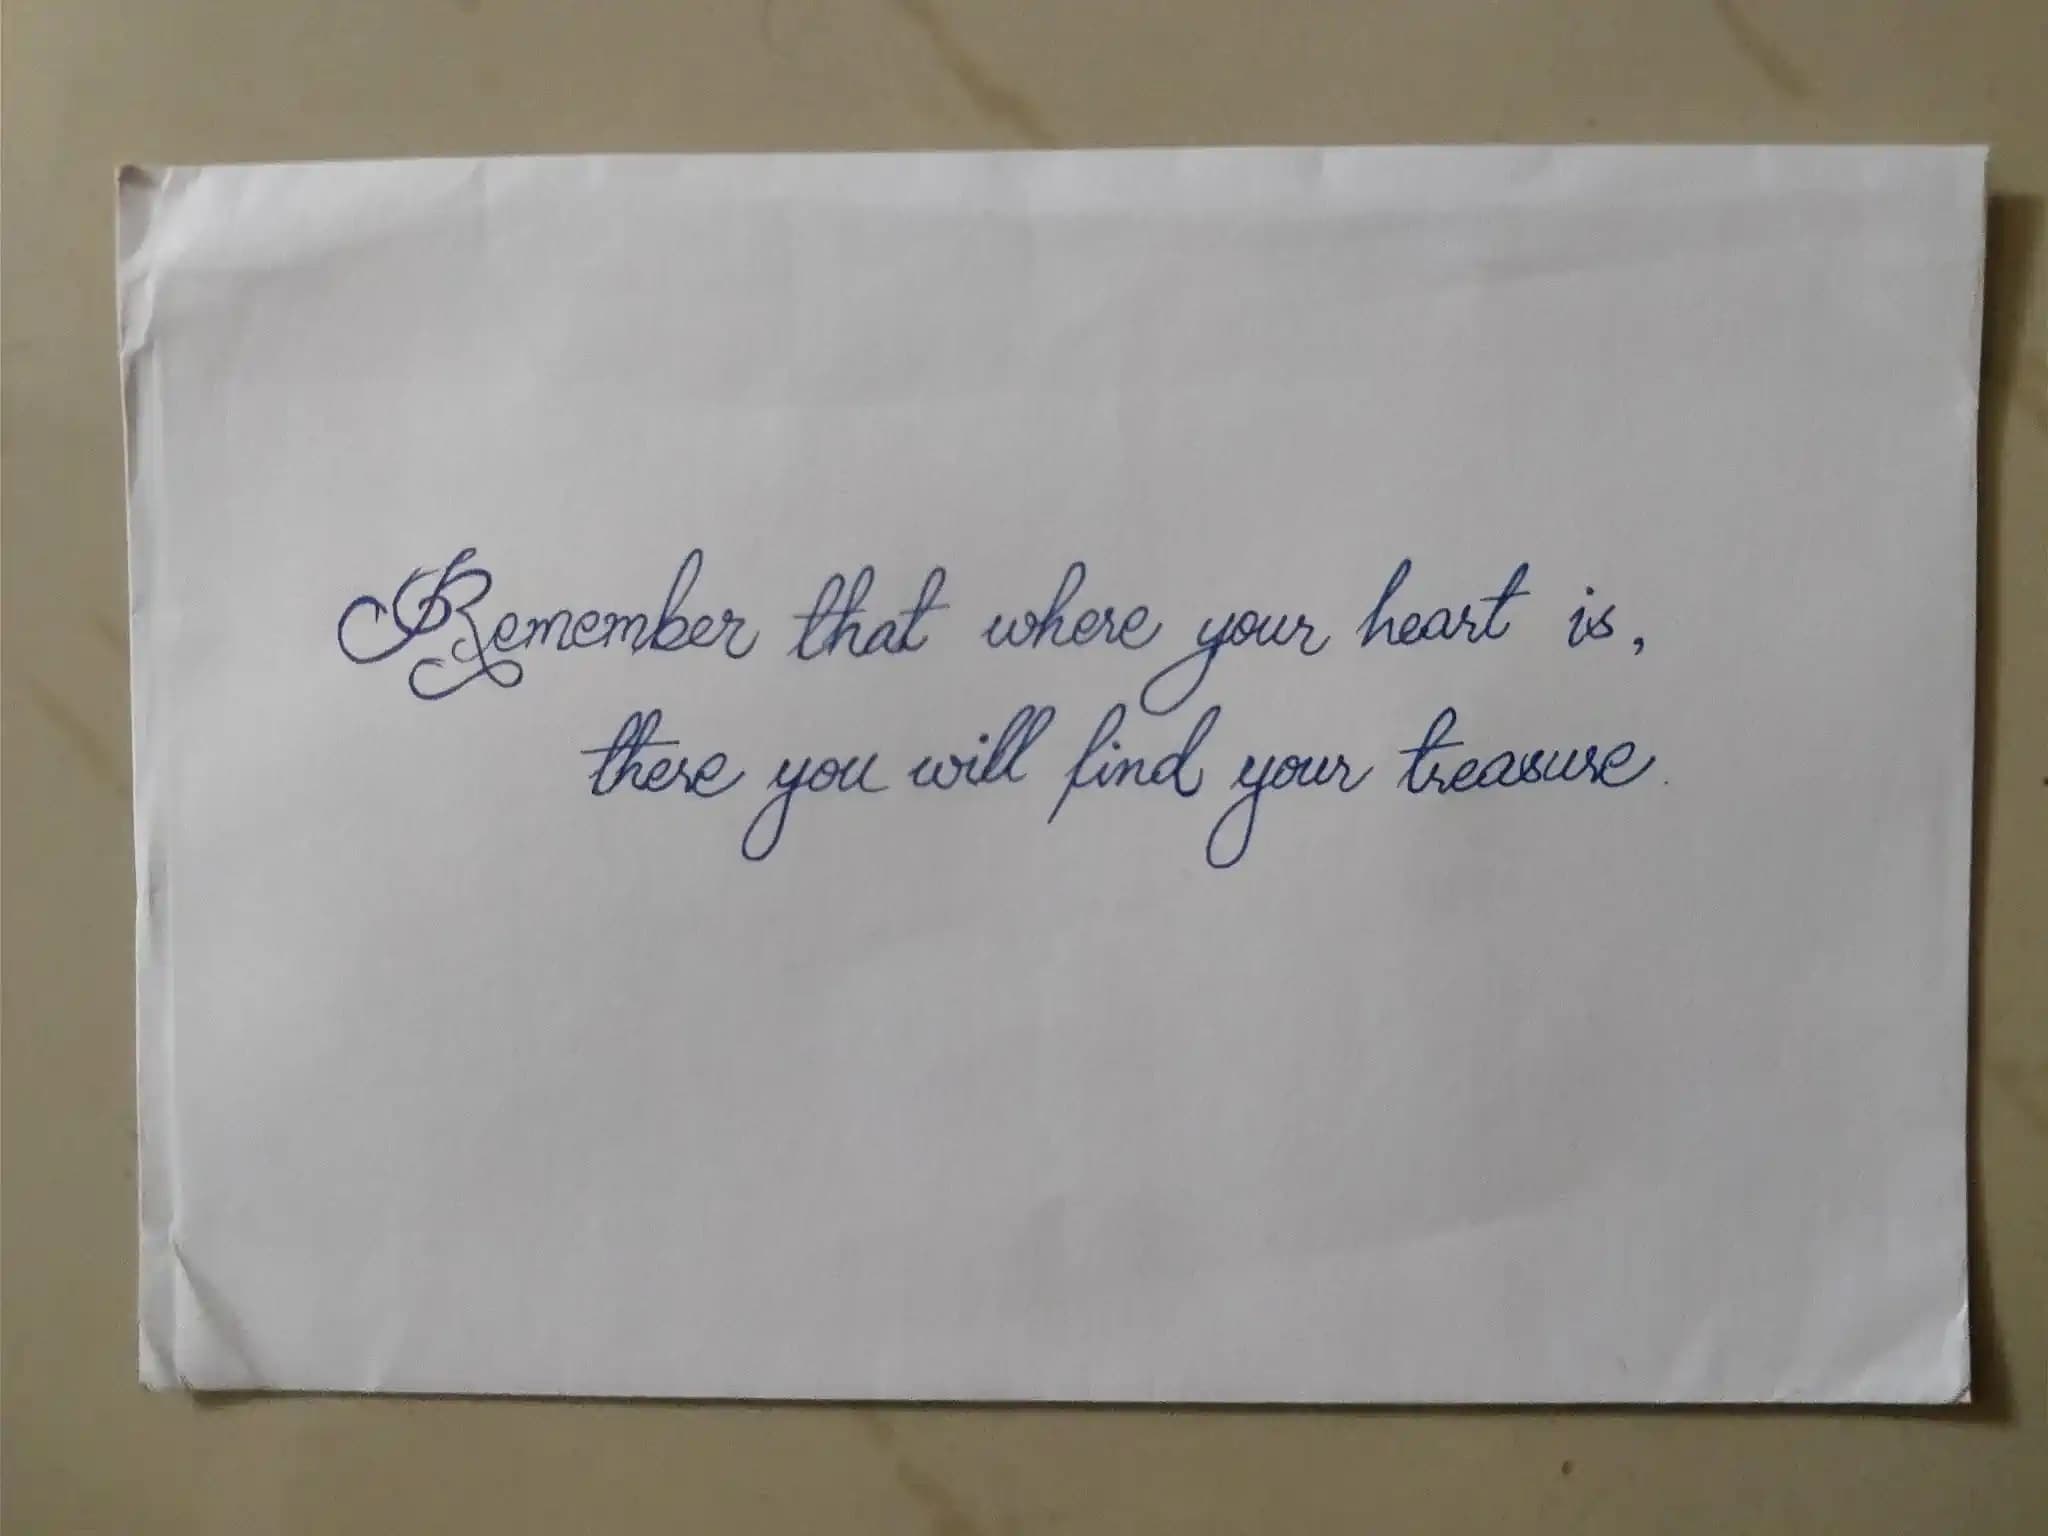 Remember that where your heart is,
there you will find your treasure.